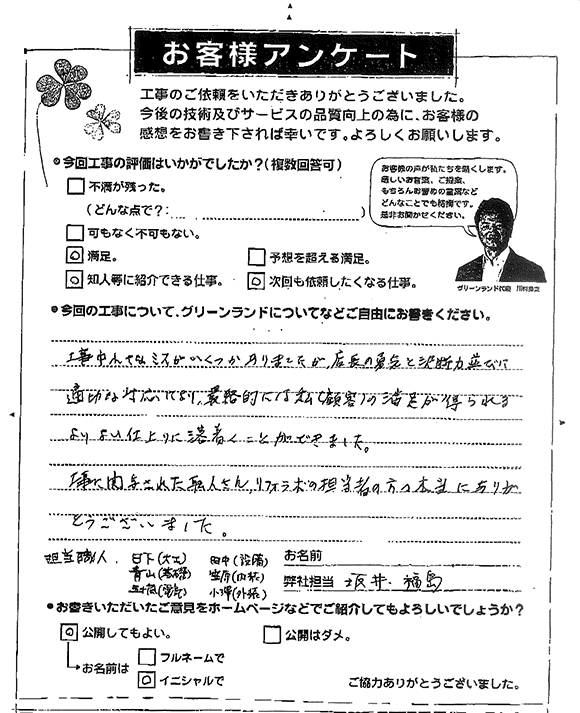 お客様アンケート
工事のご依頼をいただきありがとうございました。
今後の技術及びサービスの品質向上の為に、お客様の
感想をお書き下されば幸いです。よろしくお願いします。
●今回工事の評価はいかがでしたか?(複数回答可)
お客様の声が私たちを強くします。
厳しいお言葉、ご提案、
もちろんお褒めの言葉など
どんなことでも結構です。
是非お聞かせください。
不満が残った。
(どんな点で?: )
可もなく不可もない。
満足。
予想を超える満足。
知人等に紹介できる仕事。
次回も依頼したくなる仕事。
グリーンランド代表
●今回の工事について、グリーンランドについてなどご自由にお書きください。
工事中小さなミスがいくつかありましたが、店長の勇気と決断力並びに
適切な対応により、最終的には私(顧客)の満足が得られる
よりよい仕上りに落着くことができました。
工事に関与された職人さん、リフォラボの担当者の方々本当にありが
とうございました。
担当職人、
日下(大工) 田中(設備)
お名前
青山(基礎) (内装)
弊社担当 坂井・福島
(電気) 小澤(外装)
●お書きいただいたご意見をホームページなどでご紹介してもよろしいでしょうか?
公開してもよい。
公開はダメ。
お名前は
フルネームで
イニシャルで
ご協力ありがとうございました。